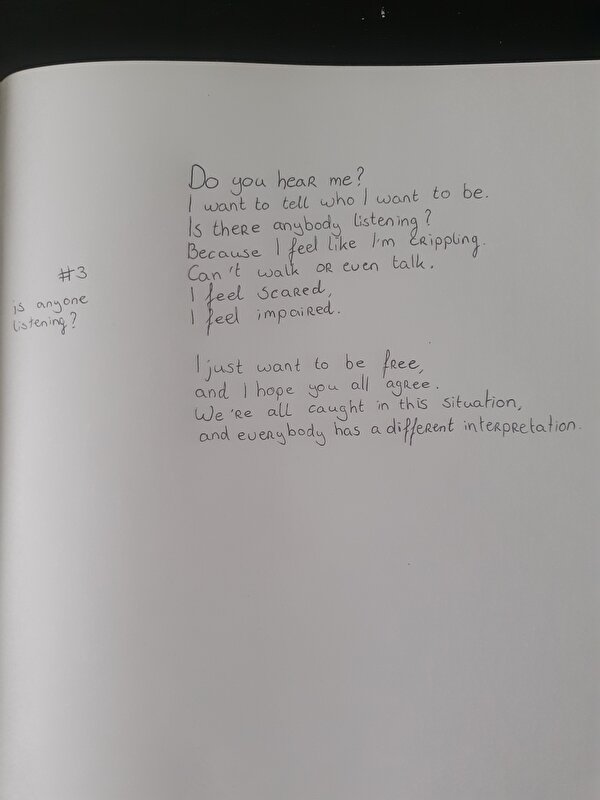 #3
is anyone
listening?
Do you hear me?
I want to tell who I want to be.
Is there anybody listening?
Because I feel like I'm crippling.
Can't walk or even talk.
I feel scared,
I feel impaired.
I just want to be free,
and I hope you all agree.
We're all caught in this situation,
and everybody has a different interpretation.